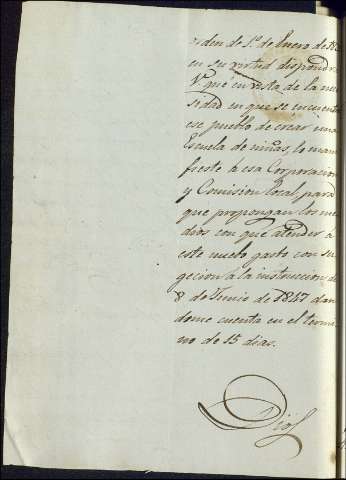 orden de 1º de Enero de 18
en su virtud dispondrá
V. que en vista de la nece
sidad en que se encuentra
ese pueblo de crear una
Escuela de niñas, lo mani
fieste á esa Corporacion
y Comision local, para
que propongan los me
dios con que atender á
este nuebo gasto con su
gecion á la instruccion de
8 de Junio de 1847 dan
dome cuenta en el termi
no de 15 dias.